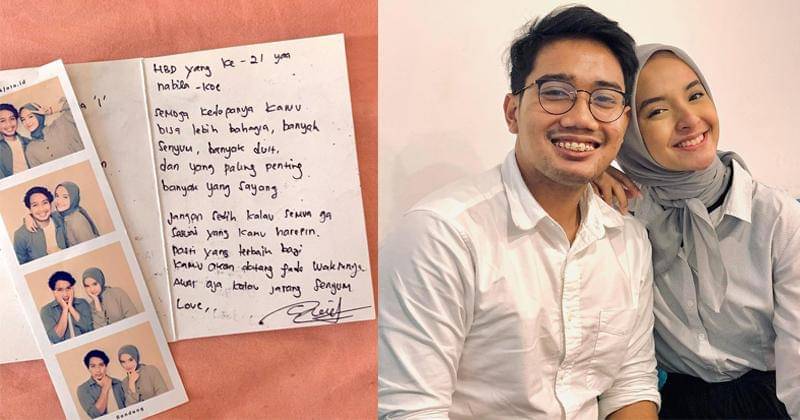 HBD yang ke -21 yaa
nabila -koe
semoga kedepanya kamu
bisa lebih bahagya, banyak
senyum, banyak duit,
dan yang paling penting
banyak yang sayang
jangan sedih kalau semua ga
sesuai yang kamu harepin.
pasti yang terbaik bagi
kamu akan datang pada waktunya.
Awas aja kalau jarang senyum
Love,,
Bandung